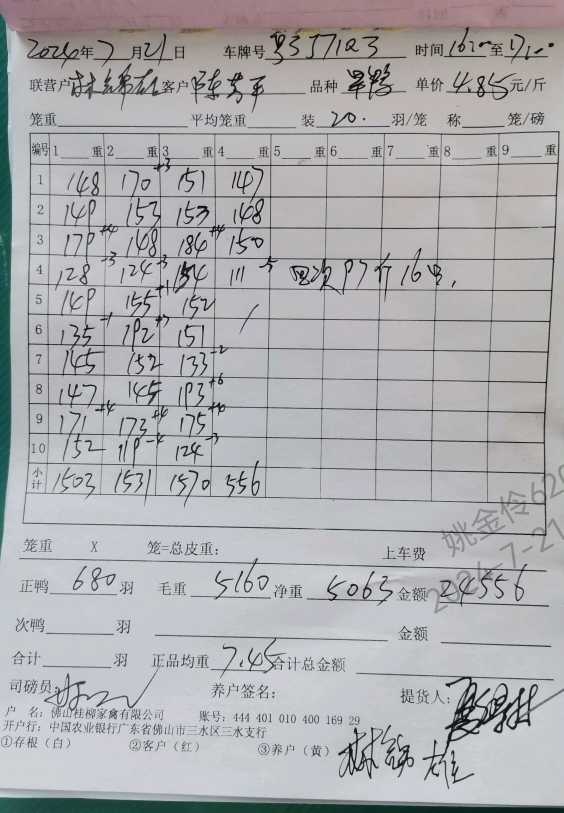 2024年7月21日 车牌号 357123 时间16:00至17:00
联营户 林锦雄 客户 陈芳平 品种 旱鸭 单价4.85元/斤
笼重 平均笼重 装20.羽/笼 称 笼/磅
编号 1 重 2 重 3 重 4 重 5 重 6 重 7 重 8 重 9 重
1 148 170+3 151 147
2 149 153 153 148
3 179+4 148 184+4 150
4 128-3 124-3 154 111-5 97斤16只.
5 149 155+1 152
6 135-1 192+7 151
7 145 152 133-2
8 147 145 193+6
9 171+4 173+4 175+4
10 152 119-4 124-3
小计 1503 1531 1570 556
笼重 X 笼=总皮重: 上车费
正鸭680羽 毛重5160净重5063金额24556
次鸭 羽 金额
合计 羽 正品均重7.45合计总金额
司磅员: 养户签名: 提货人:
户 名:佛山桂柳家禽有限公司 账号: 444 401 010 400 169 29
开户行: 中国农业银行广东省佛山市三水区三水支行
①存根(白) ②客户(红) ③养户(黄) 林锦雄
姚金伶620
2024-7-21